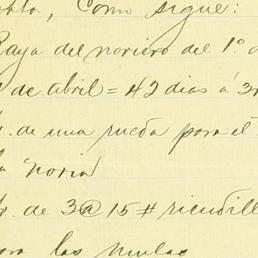 como sigue:
Raya del noriero del 1.º
de abril = 42 dias á
de una rueda para el
la noria
de 3@ 15 #
para las mulas